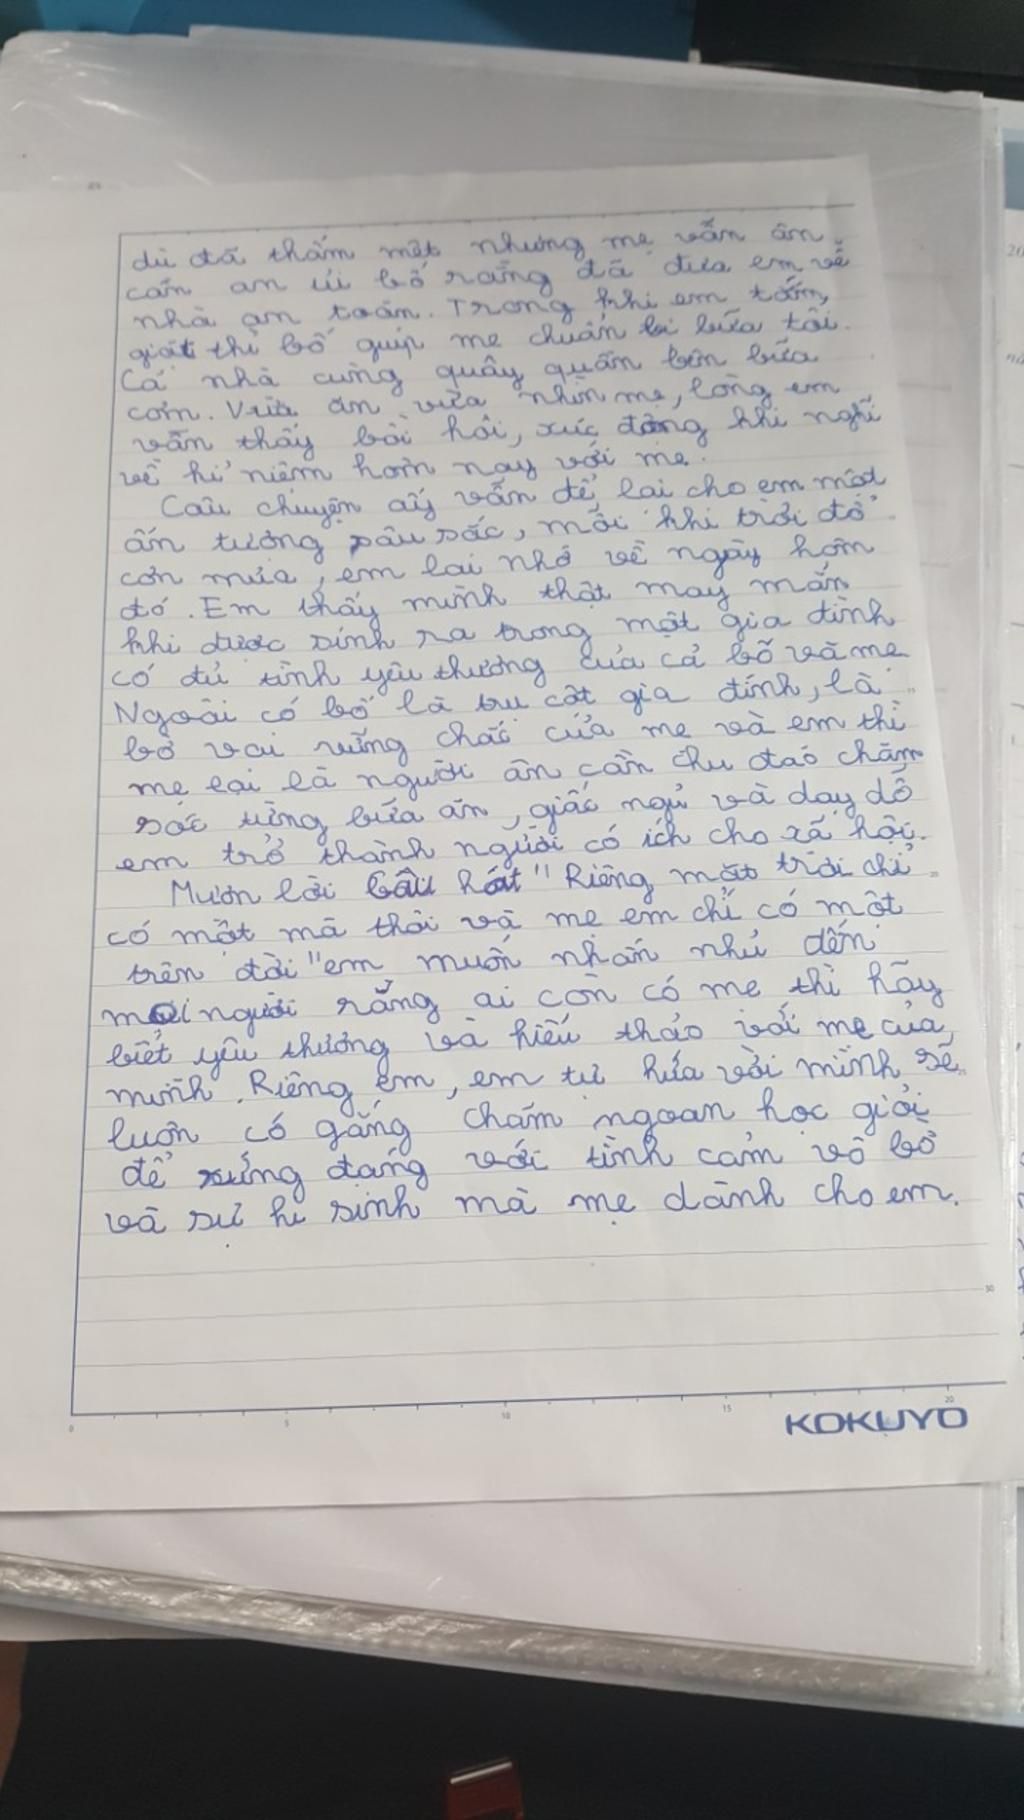 dù đã thấm mệt nhưng mẹ vẫn ân
cần an ủi bố rằng đã đưa em về
nhà an toàn. Trong khi em tắm,
giặt thì bố giúp mẹ chuẩn bị bữa tối.
Cả nhà cùng quây quần bên bữa
cơm. Vừa ăn vừa nhìn mẹ, lòng em
vẫn thấy bồi hồi, xúc động khi nghĩ
về kỉ niệm hôm nay với mẹ.
Câu chuyện ấy vẫn để lại cho em một
ấn tượng sâu sắc, mỗi khi trời đổ
cơn mưa, em lại nhớ về ngày hôm
đó. Em thấy mình thật may mắn
khi được sinh ra trong một gia đình
có đủ tình yêu thương của cả bố và mẹ
Ngoài có bố là trụ cột gia đình, là
bờ vai vững chắc của mẹ và em thì
mẹ lại là người ân cần chu đáo chăm
sóc từng bữa ăn, giấc ngủ và dạy dỗ
em trở thành người có ích cho xã hội.
Mượn lời câu hát "Riêng mặt trời chỉ
có một mà thôi và mẹ em chỉ có một
trên đời" em muốn nhắn nhủ đến
mọi người rằng ai còn có mẹ thì hãy
biết yêu thương và hiếu thảo với mẹ của
mình. Riêng em, em tự hứa với mình sẽ
luôn cố gắng chăm ngoan học giỏi
để xứng đáng với tình cảm vô bờ
và sự hi sinh mà mẹ dành cho em.
30
0 5 10 15 20
KOKUYO